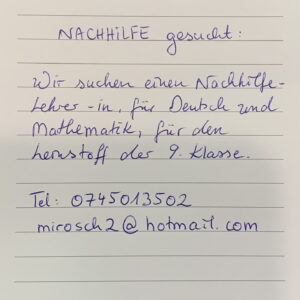 NACHHiLFE gesucht:
Wir suchen einen Nachhilfe-
Lehrer -in, für Deutsch und
Mathematik, für den
Lernstoff der 9. Klasse.
Tel: 0745013502
mirosch2@hotmail.com